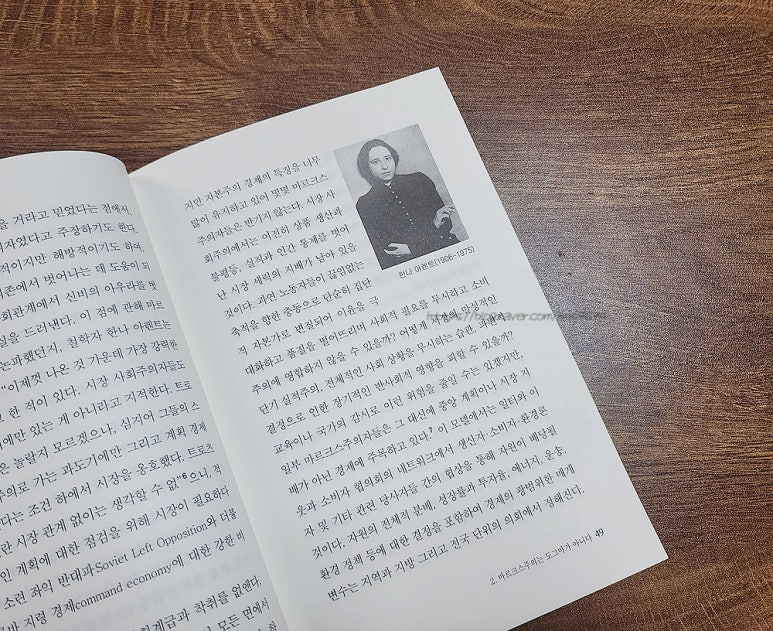 을 거라고 믿었다는 점에서,
지었다고 주장하기도 한다.
적이지만 해방적이기도 하여,
존에서 벗어나는 데 도움이 되
회관계에서 신비의 아우라를 벗
실을 드러낸다. 이 점에 관해 마르
는파했던지, 철학자 한나 아렌트는
"이제껏 나온 것 가운데 가장 강력한
한 적이 있다. 시장 사회주의자들도
에만 있는 게 아니라고 지적한다. 트로
은 놀랄지 모르겠으나, 심지어 그들의 스
주의로 가는 과도기에만 그리고 계획 경제
다는 조건 하에서 시장을 옹호했다. 트로츠
시장 관계 없이는 생각할 수 없"6으니, 적
인 계획에 대한 점검을 위해 시장이 필요하다
소련 좌익 반대파Soviet Left Opposition와 더불
지령 경제command economy에 대한 강한 비
계급과 착취를 없앤다.
모든 면에서
지만 자본주의 경제의 특징을 너무
많이 유지하고 있어 몇몇 마르크스
주의자들은 반기지 않는다. 시장 사
회주의에서는 여전히 상품 생산과
불평등, 실직과 인간 통제를 벗어
난 시장 세력의 지배가 남아 있을
것이다. 과연 노동자들이 끊임없는
축적을 향한 충동으로 단순히 집단
적 자본가로 변질되어 이윤을 극
대화하고 품질을 떨어뜨리며 사회적 필요를 무시하고 소비
주의에 영합하지 않을 수 있을까? 어떻게 시장의 만성적인
단기 실적주의, 전체적인 사회 상황을 무시하는 습관, 파편
결정으로 인한 장기적인 반사회적 영향을 피할 수 있을까?
교육이나 국가의 감시로 이런 위험을 줄일 수는 있겠지만,
일부 마르크스주의자들은 그 대신에 중앙 계획이나 시장 지
배가 아닌 경제에 주목하고 있다.7 이 모델에서는 일터와 이
웃과 소비자 협의회의 네트워크에서 생산자·소비자·환경론
자 및 기타 관련 당사자들 간의 협상을 통해 자원이 배당될
것이다. 자원의 전체적 분배, 성장률과 투자율, 에너지, 운송,
환경 정책 등에 대한 결정을 포함하여 경제의 광범위한 매개
변수는 지역과 지방 그리고 전국 단위의 의회에서 정해진다.
한나 아렌트(1906-1975)
2. 마르크스주의는 도그마가 아니다 49